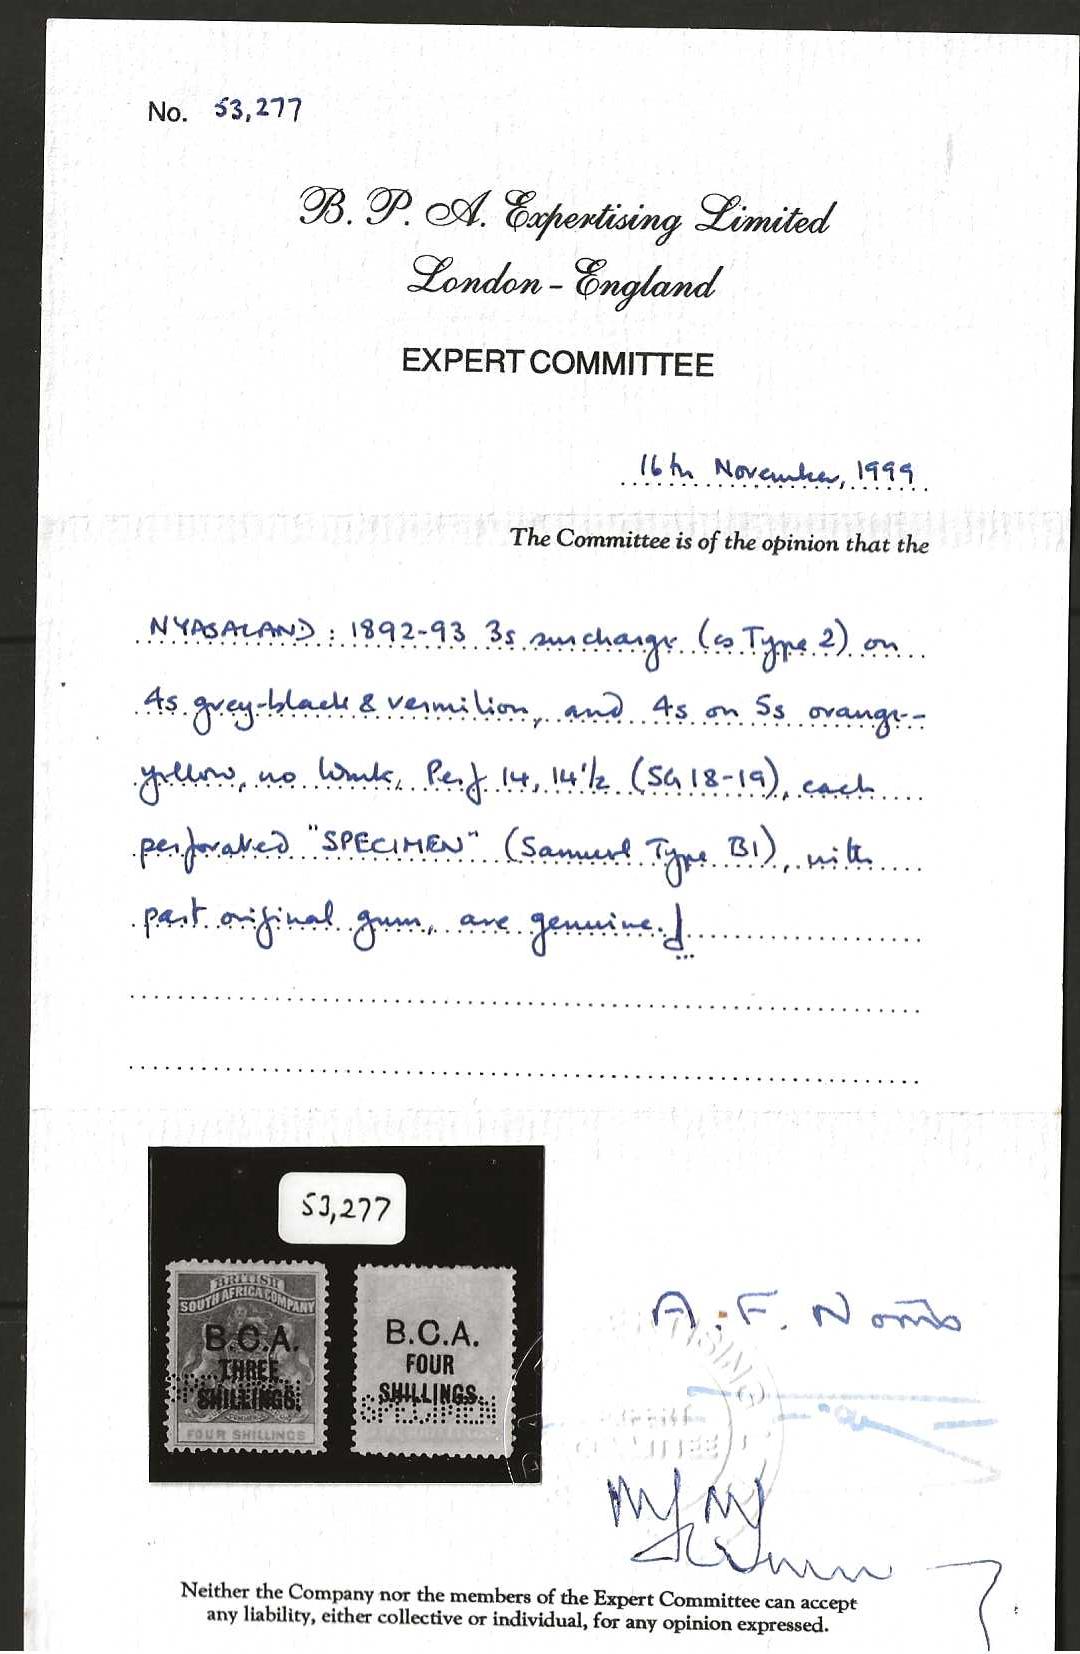 No. 53,277
B. P. A. Expertising Limited
London - England
EXPERT COMMITTEE
16th November, 1999
The Committee is of the opinion that the
NYASALAND: 1892-93 3s surcharge (as Type 2) on
4s grey-black & vermilion, and 4s on 5s orange-
yellow, no Wmk, Perf 14, 14½ (SG 18-19), each
perforated "SPECIMEN" (Samuel Type B1), with
part original gum, are genuine.
53,277
BRITISH
SOUTH AFRICA COMPANY
B.C.A.
THREE
SHILLINGS.
FOUR SHILLINGS
B.C.A.
FOUR
SHILLINGS.
SPECIMEN
A. F. Norris
Neither the Company nor the members of the Expert Committee can accept
any liability, either collective or individual, for any opinion expressed.